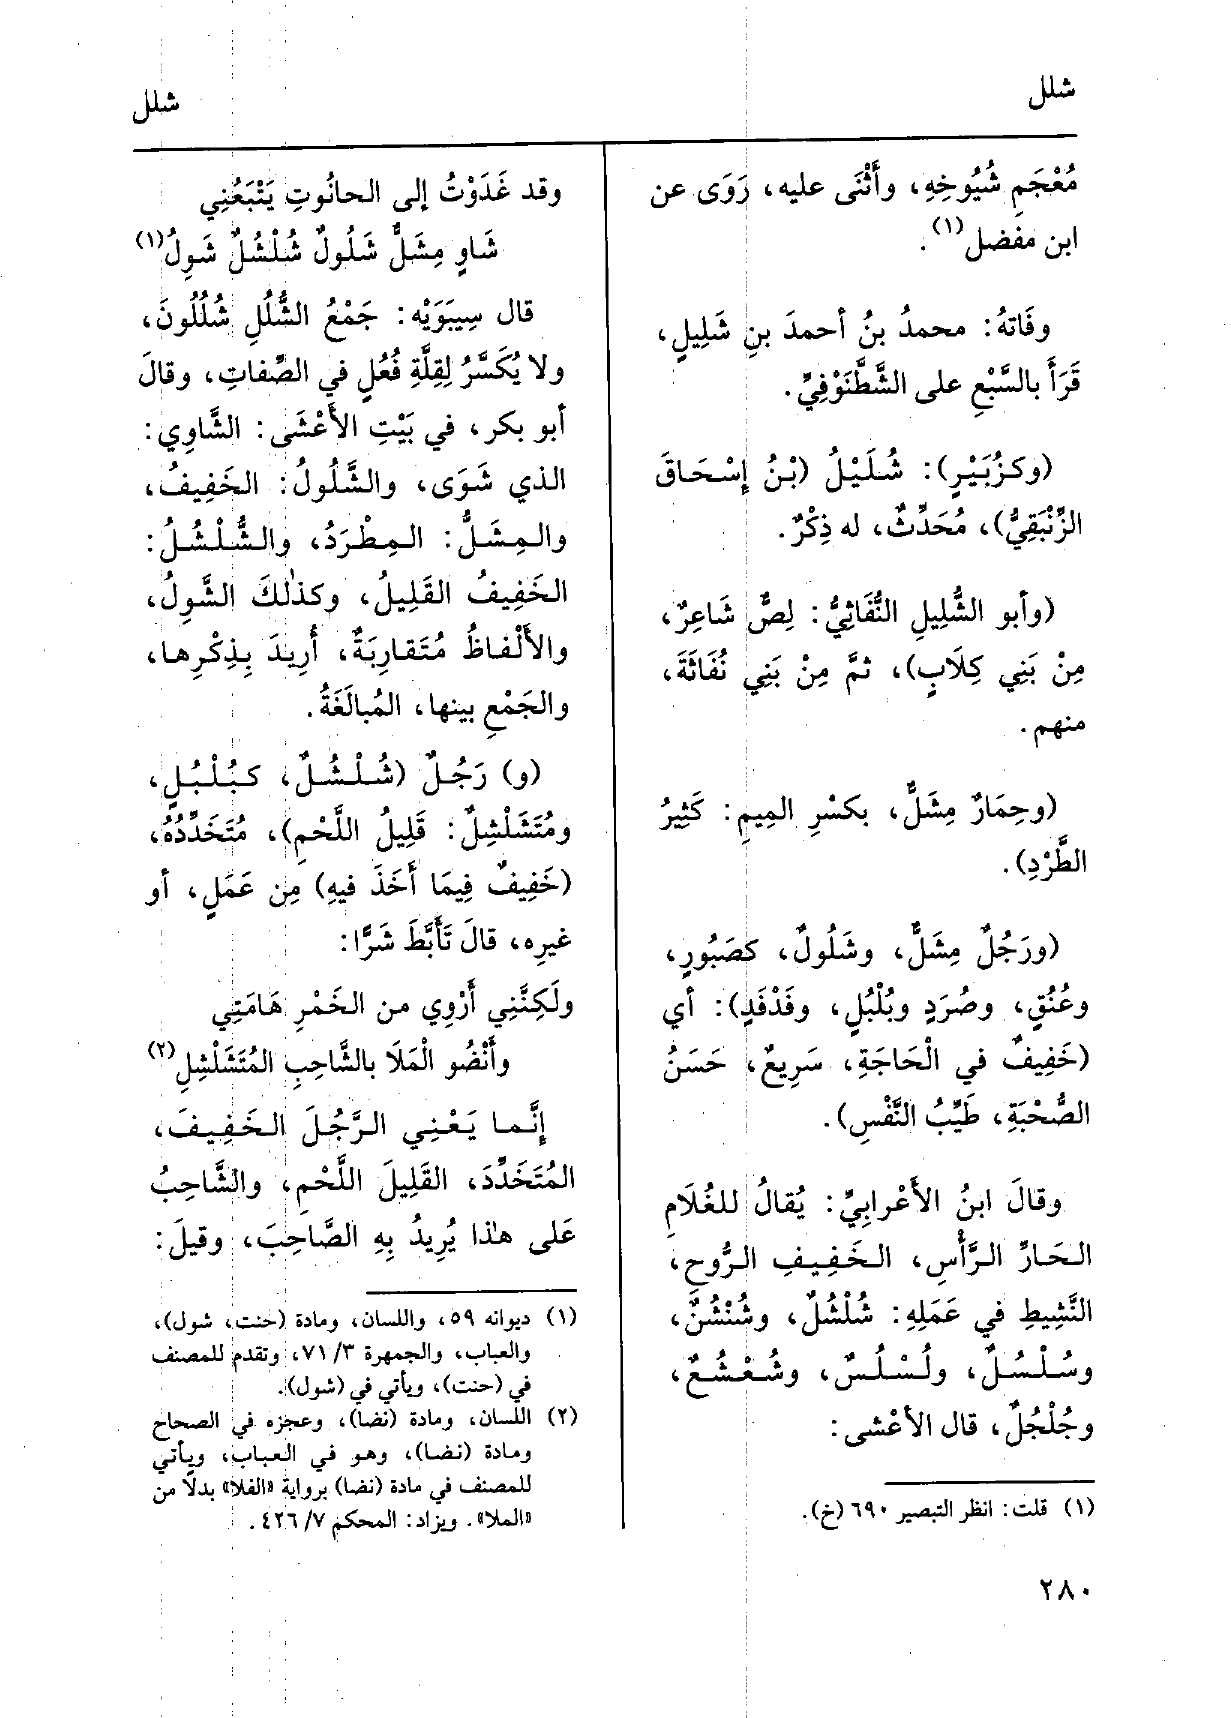 شلل
شلل
مُعْجَمِ شُيُوخِهِ، وأَثْنَى عليه، رَوَى عن
ابن مفضل(١).
وفَاتهُ: محمدُ بنُ أحمدَ بنِ شَلِيلٍ،
قَرَأَ بالسَّبْعِ على الشَّطَّنَوْفِيِّ.
(وكزُبَيْرٍ): شُلَيْلُ (بْنُ إِسْحَاقَ
الزِّنْبَقِيُّ)، مُحَدِّثٌ، له ذِكْرٌ.
(وأبو الشُّلِيلِ النُّفَاثِيُّ: لِصٌّ شَاعِرٌ،
مِنْ بَنِي كِلَابٍ)، ثمَّ مِنْ بَنِي نُفَاثَةَ،
منهم.
(وحِمَارٌ مِشَلٌّ، بكسْرِ المِيمِ: كَثِيرُ
الطَّرْدِ).
(ورَجُلٌ مِشَلٌّ، وشَلُولٌ، كصَبُورٍ،
وعُنُقٍ، وصُرَدٍ وبُلْبُلٍ، وفَدْفَدٍ): أي
(خَفِيفٌ في الْحَاجَةِ، سَرِيعٌ، حَسَنُ
الصُّحْبَةِ، طَيِّبُ النَّفْسِ).
وقالَ ابنُ الأَعْرابِيِّ: يُقالُ للغُلَامِ
الحَارِّ الرَّأْسِ، الخَفِيفِ الرُّوحِ،
النَّشِيطِ في عَمَلِهِ: شُلْشُلٌ، وشُنْشُنٌ،
وسُلْسُلٌ، ولُسْلُسٌ، وشُعْشُعٌ،
وجُلْجُلٌ، قال الأَعْشى:
(١) قلت: انظر التبصير ٦٩٠ (خ).
وقد غَدَوْتُ إلى الحانُوتِ يَتْبَعُنِي
شَاوٍ مِشَلٌّ شَلُولٌ شُلْشُلٌ شَوِلُ(١)
قال سِيبَوَيْه: جَمْعُ الشُّلُلِ شُلُلُونَ،
ولا يُكَسَّرُ لِقِلَّةِ فُعُلٍ في الصِّفاتِ، وقالَ
أبو بكر، في بَيْتِ الأَعْشَى: الشَّاوِي:
الذي شَوَى، والشَّلُولُ: الخَفِيفُ،
والمِشَلُّ: المِطْرَدُ، والشُّلْشُلُ:
الخَفِيفُ القَلِيلُ، وكذٰلكَ الشَّوِلُ،
والأَلْفاظُ مُتَقارِبَةٌ، أُرِيدَ بِذِكْرِها،
والجَمْعِ بينها، المُبالَغَةُ.
(و) رَجُلٌ (شُلْشُلٌ، كبُلْبُلٍ،
ومُتَشَلْشِلٌ: قَلِيلُ اللَّحْمِ)، مُتَخَدِّدُهُ،
(خَفِيفٌ فِيمَا أَخَذَ فيهِ) مِن عَمَلٍ، أو
غيرِه، قالَ تَأَبَّطَ شَرًّا:
ولَكِنَّنِي أَرْوِي من الخَمْرِ هَامَتِي
وأَنْضُو الْمَلَا بالشَّاحِبِ المُتَشَلْشِلِ(٢)
إِنَّما يَعْنِي الرَّجُلَ الخَفِيفَ،
المُتَخَدِّدَ، القَلِيلَ اللَّحْمِ، والشَّاحِبُ
عَلى هٰذا يُرِيدُ بِهِ الصَّاحِبَ، وقيلَ:
(١) ديوانه ٥٩، واللسان، ومادة (حنت، شول)،
والعباب، والجمهرة ٣/ ٧١، وتقدم للمصنف
في (حنت)، ويأتي في (شول).
(٢) اللسان، ومادة (نضا)، وعجزه في الصحاح
ومادة (نضا)، وهو في العباب، ويأتي
للمصنف في مادة (نضا) برواية «الفلا» بدلًا من
«الملا». ويزاد: المحكم ٧/ ٤٢٦.
٢٨٠